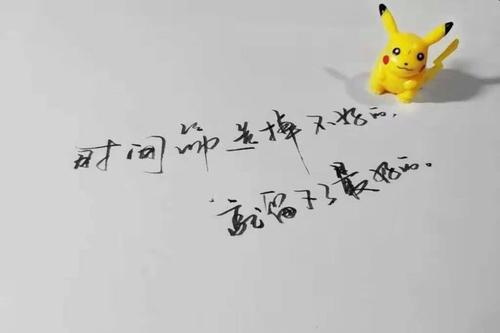 时间筛选掉不好的.
就留下了最好的.